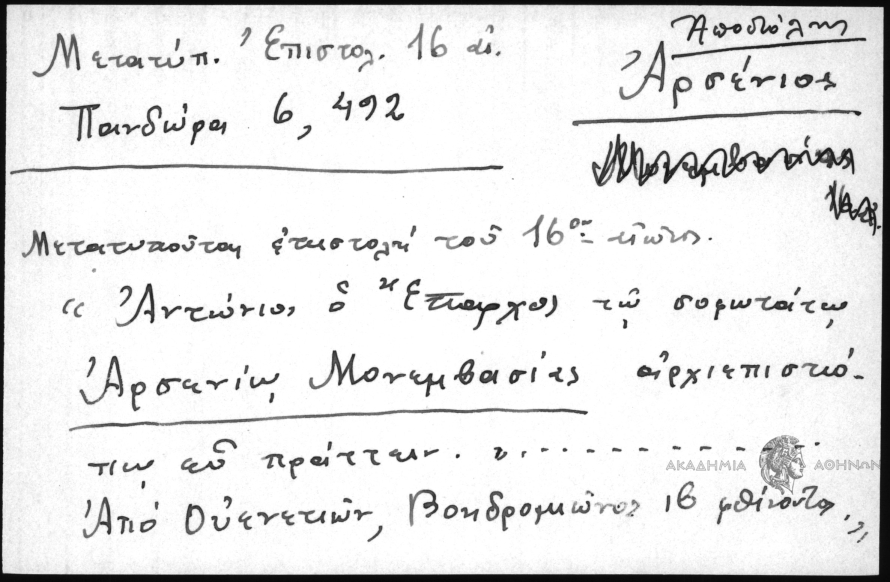 Μετατύπ. Ἐπιστολ. 16 αἰ.
Πανδώρα 6, 492
Ἀποστόλης
Ἀρσένιος
Μετατυποῦται ἐπιστολή τοῦ 16ου αἰῶνος.
«Ἀντώνιος ὁ Ἔπαρχος τῷ σοφωτάτῳ
Ἀρσενίῳ Μονεμβασίας ἀρχιεπισκό-
πῳ εὖ πράττειν.
ΑΚΑΔΗΜΙΑ ΑΘΗΝΩΝ
Ἀπό Οὐενετιῶν, Βοηδρομιῶνος ιβ φθίνοντος»